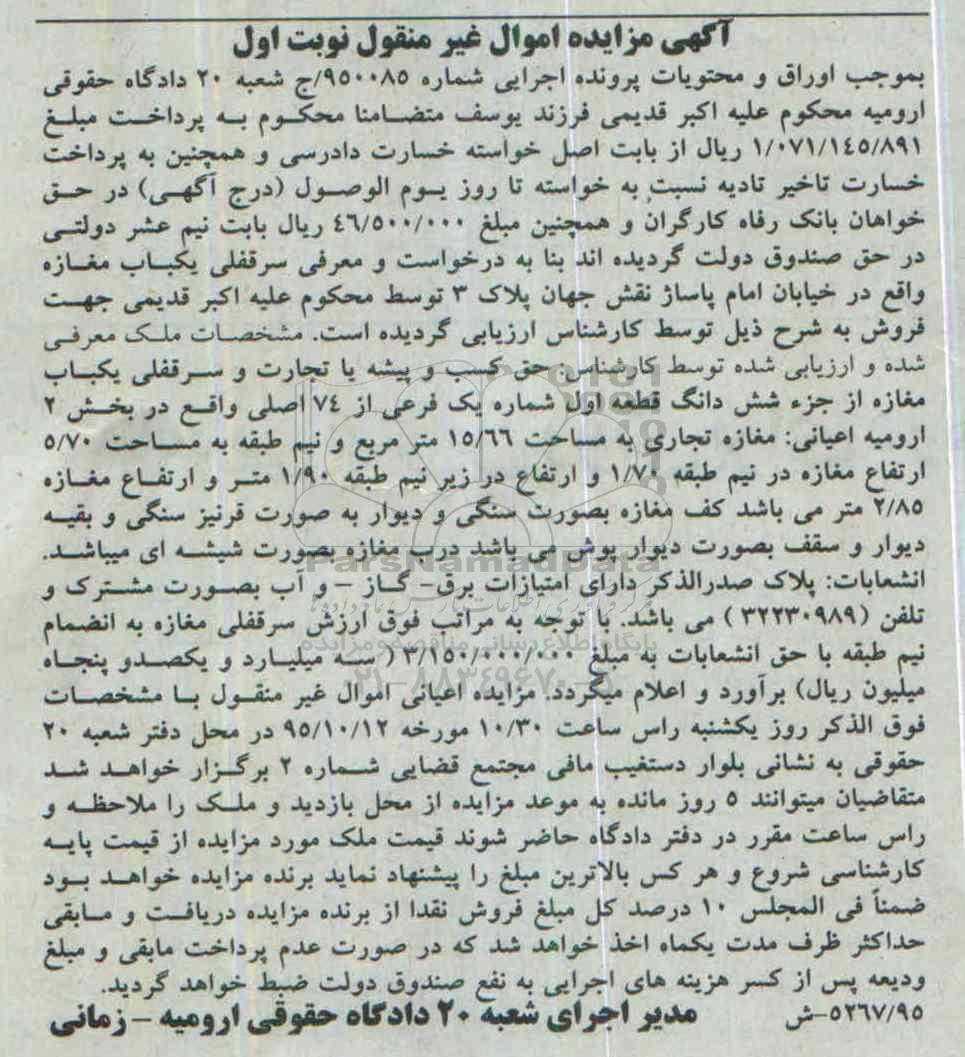 آگهی مزایده اموال غیر منقول نوبت اول
بموجب اوراق و محتویات پرونده اجرایی شماره ۹۵۰۰۸۵/ج شعبه ۲۰ دادگاه حقوقی
ارومیه محکوم علیه اکبر قدیمی فرزند یوسف متضامنا محکوم به پرداخت مبلغ
۱/۰۷۱/۱٤۵/۸۹۱ ریال از بابت اصل خواسته خسارت دادرسی و همچنین به پرداخت
خسارت تاخیر تادیه نسبت به خواسته تا روز یوم الوصول (درج آگهی) در حق
خواهان بانک رفاه کارگران و همچنین مبلغ ٤٦/۵۰۰/۰۰۰ ریال بابت نیم عشر دولتی
در حق صندوق دولت گردیده اند بنا به درخواست و معرفی سرقفلی یکباب مغازه
واقع در خیابان امام پاساژ نقش جهان پلاک ۳ توسط محکوم علیه اکبر قدیمی جهت
فروش به شرح ذیل توسط کارشناس ارزیابی گردیده است. مشخصات ملک معرفی
شده و ارزیابی شده توسط کارشناس: حق کسب و پیشه یا تجارت و سرقفلی یکباب
مغازه از جزء شش دانگ قطعه اول شماره یک فرعی از ۷٤ اصلی واقع در بخش ۲
ارومیه اعیانی: مغازه تجاری به مساحت ۱۵/٦٦ متر مربع و نیم طبقه به مساحت ۵/۷۰
ارتفاع مغازه در نیم طبقه ۱/۷۰ و ارتفاع در زیر نیم طبقه ۱/۹۰ متر و ارتفاع مغازه
۲/۸۵ متر می باشد کف مغازه بصورت سنگی و دیوار به صورت قرنیز سنگی و بقیه
دیوار و سقف بصورت دیوار پوش می باشد درب مغازه بصورت شیشه ای میباشد.
ParsNamadData
انشعابات: پلاک صدرالذکر دارای امتیازات برق- گاز - و آب بصورت مشترک و
تلفن (۳۲۲۳۰۹۸۹) می باشد. با توجه به مراتب فوق ارزش سرقفلی مغازه به انضمام
پایگاه اطلاع رسانی مناقصه و مزایده
نیم طبقه با حق انشعابات به مبلغ ۳/۱۵۰/۰۰۰/۰۰۰ (سه میلیارد و یکصدو پنجاه
۰۲۱-۸۸۳۴۹۶۷۰
میلیون ریال) برآورد و اعلام میگردد. مزایده اعیانی اموال غیر منقول با مشخصات
فوق الذکر روز یکشنبه راس ساعت ۱۰/۳۰ مورخه ۹۵/۱۰/۱۲ در محل دفتر شعبه ۲۰
حقوقی به نشانی بلوار دستغیب مافی مجتمع قضایی شماره ۲ برگزار خواهد شد
متقاضیان میتوانند ۵ روز مانده به موعد مزایده از محل بازدید و ملک را ملاحظه و
راس ساعت مقرر در دفتر دادگاه حاضر شوند قیمت ملک مورد مزایده از قیمت پایه
کارشناسی شروع و هر کس بالاترین مبلغ را پیشنهاد نماید برنده مزایده خواهد بود
ضمناً فی المجلس ۱۰ درصد کل مبلغ فروش نقدا از برنده مزایده دریافت و مابقی
حداکثر ظرف مدت یکماه اخذ خواهد شد که در صورت عدم پرداخت مابقی و مبلغ
ودیعه پس از کسر هزینه های اجرایی به نفع صندوق دولت ضبط خواهد گردید.
۵۲٦۷/۹۵-ش مدیر اجرای شعبه ۲۰ دادگاه حقوقی ارومیه - زمانی